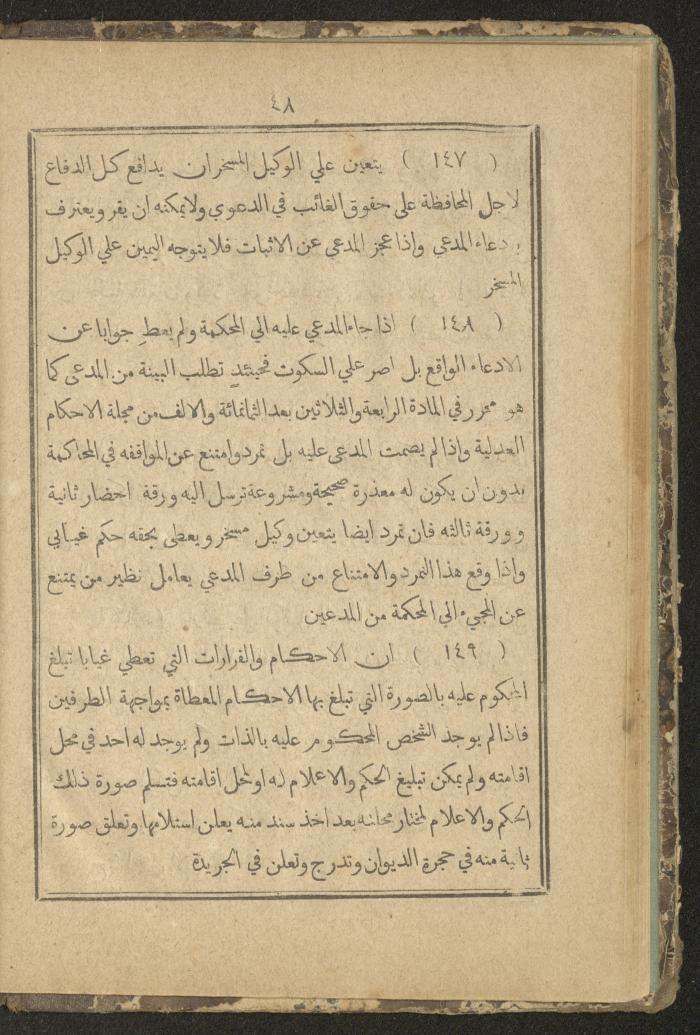 ٤٨
( ١٤٧ ) يتعين علي الوكيل المسخر ان يدافع كل الدفاع
لاجل المحافظة على حقوق الغائب في الدعوي ولا يمكنه ان يقر ويعترف
بدعاء المدعي واذا عجز المدعي عن الاثبات فلا يتوجه اليمين علي الوكيل
المسخر
( ١٤٨ ) اذا جاء المدعي عليه الي المحكمة ولم يعطِ جوابا عن
الادعاء الواقع بل اصر علي السكوت فحينئذٍ تطلب البينة من المدعى كما
هو محرر في المادة الرابعة والثلاثين بعد الثمانمائة والالف من مجلة الاحكام
العدلية واذا لم يصمت المدعى عليه بل تمرد وامتنع عن الموافقه في المحاكمة
بدون ان يكون له معذرة صحيحة ومشروعة ترسل اليه ورقة احضار ثانية
وورقة ثالثه فان تمرد ايضا يتعين وكيل مسخر ويعطى بحقه حكم غيابي
واذا وقع هذا التمرد والامتناع من طرف المدعي يعامل نظير من يمتنع
عن المجيء الي المحكمة من المدعين
( ١٤٩ ) ان الاحكام والقرارات التي تعطي غيابا تبلغ
المحكوم عليه بالصورة التي تبلغ بها الاحكام المعطاة بمواجهة الطرفين
فاذا لم يوجد الشخص المحكوم عليه بالذات ولم يوجد له احد في محل
اقامته ولم يمكن تبليغ الحكم والاعلام له او لمحل اقامته فتسلم صورة ذلك
الحكم والاعلام لمختار محلته بعد اخذ سند منه يعلن استلامها وتعلق صورة
ثانية منه في حجرة الديوان وتدرج وتعلن في الجريدة